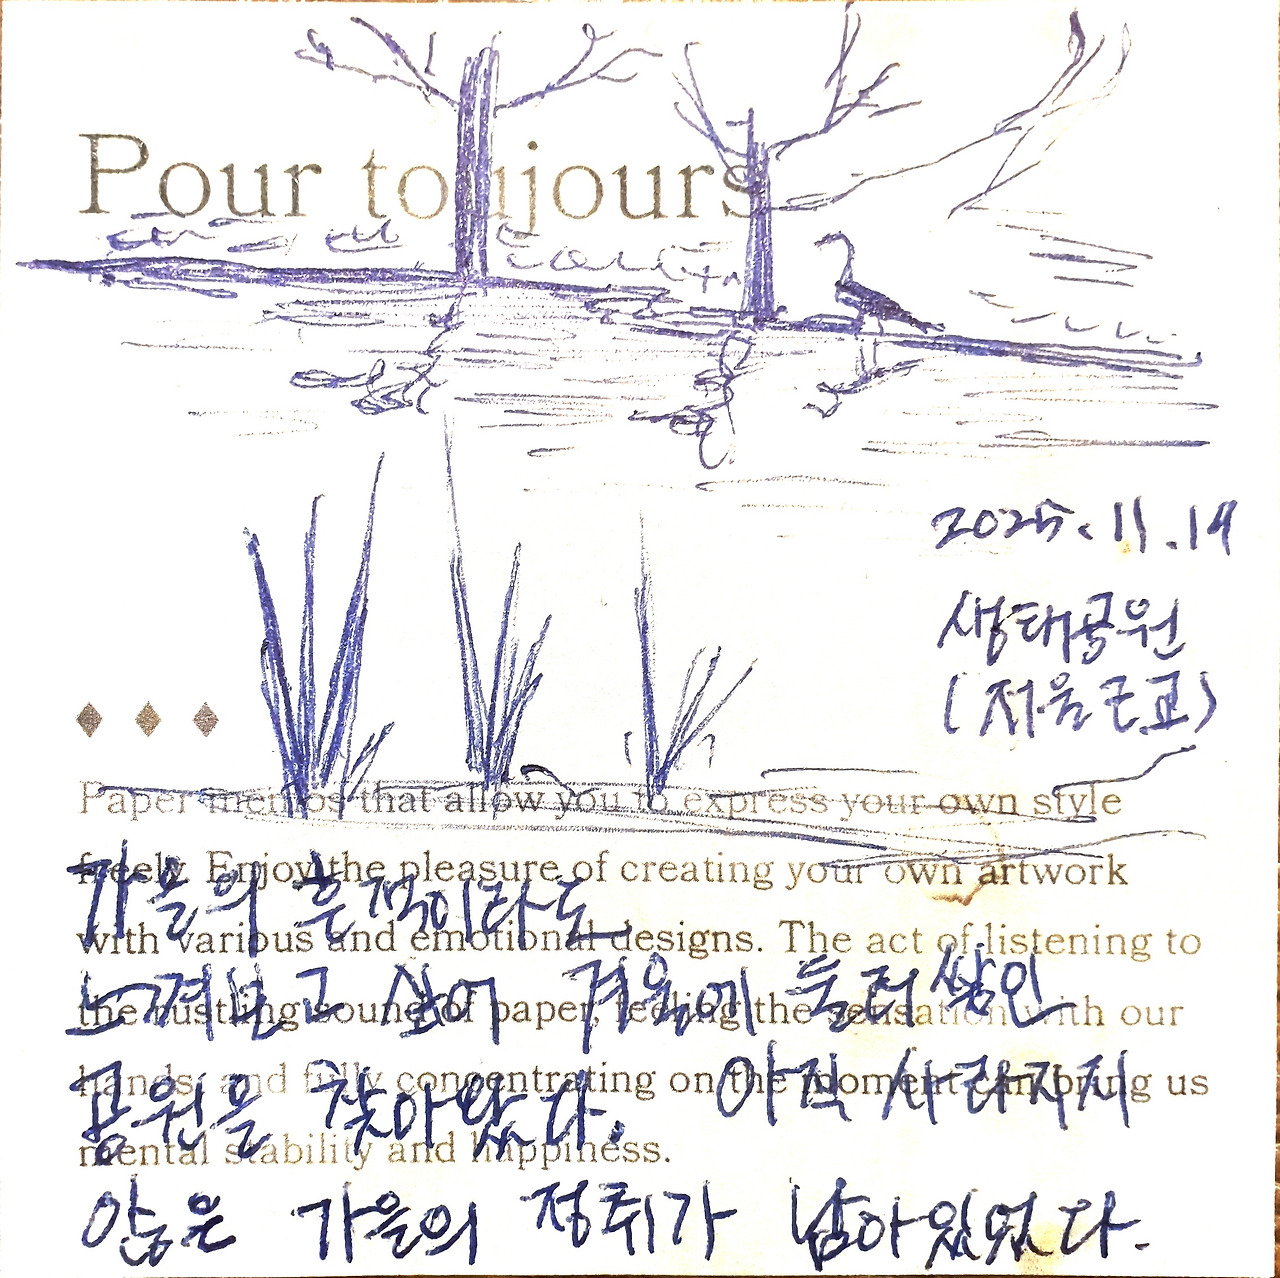 Pour toujours
2025.11.19
생태공원
(저음근교)
Paper memos that allow you to express your own style
freely. Enjoy the pleasure of creating your own artwork
가을의 흔적이라도
with various and emotional designs. The act of listening to
느껴보고 싶어 겨울에 둘러쌓인
the rustling sound of paper, feeling the sensation with our
공원을 찾아왔다. 아직 사라지지
hands, and fully concentrating on the moment can bring us
mental stability and happiness.
않은 가을의 정취가 남아있었다.